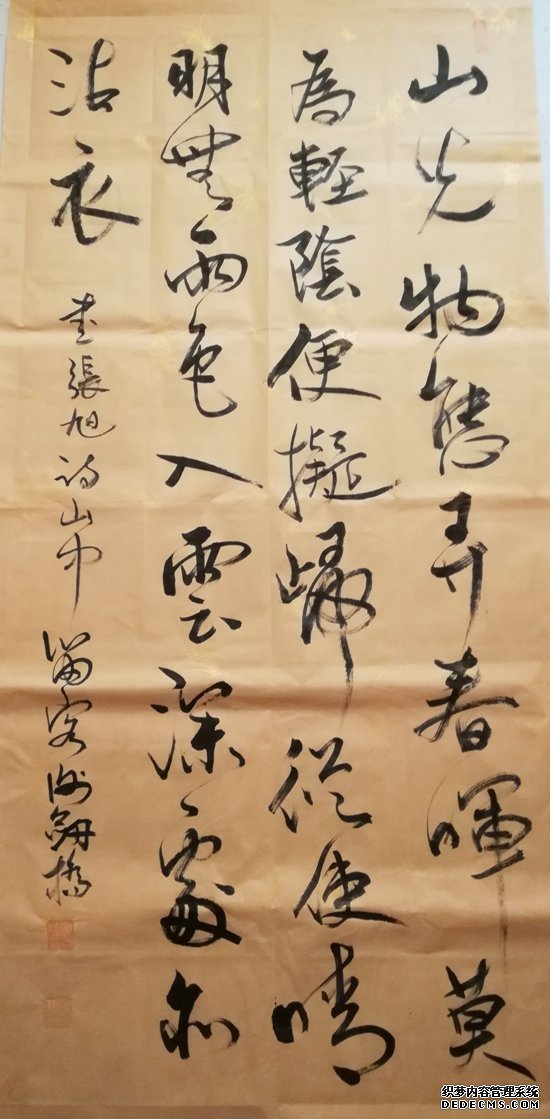 山光物態弄春暉莫
為輕陰便擬歸從使晴
明無雨色入雲深處亦
沾衣
書張旭詩山中留客謝劍橋
织梦内容管理系统
DEDECMS.COM